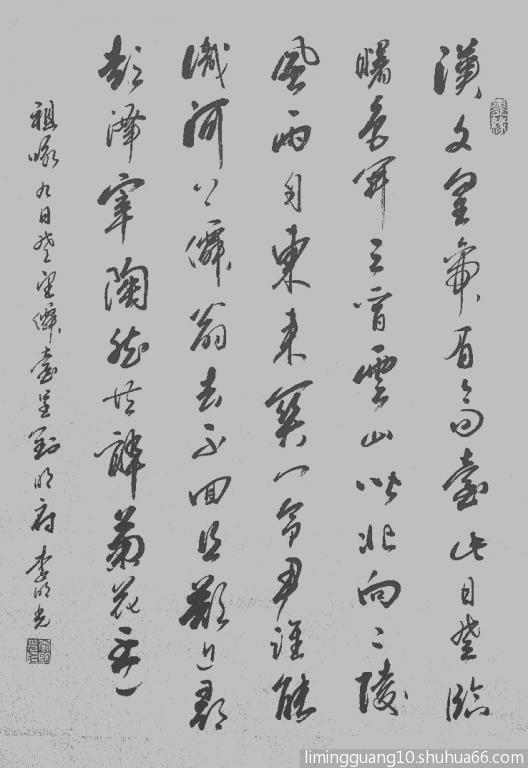 漢文皇帝有高臺此日登臨
曙色開三晉雲山皆北向二陵
風雨自東來關門令尹誰能
識河上僊翁去不回且欲近尋
彭澤宰陶然共醉菊花盃
祖咏九日登望僊臺呈劉明府 李明光
limingguang10.shuhua66.com